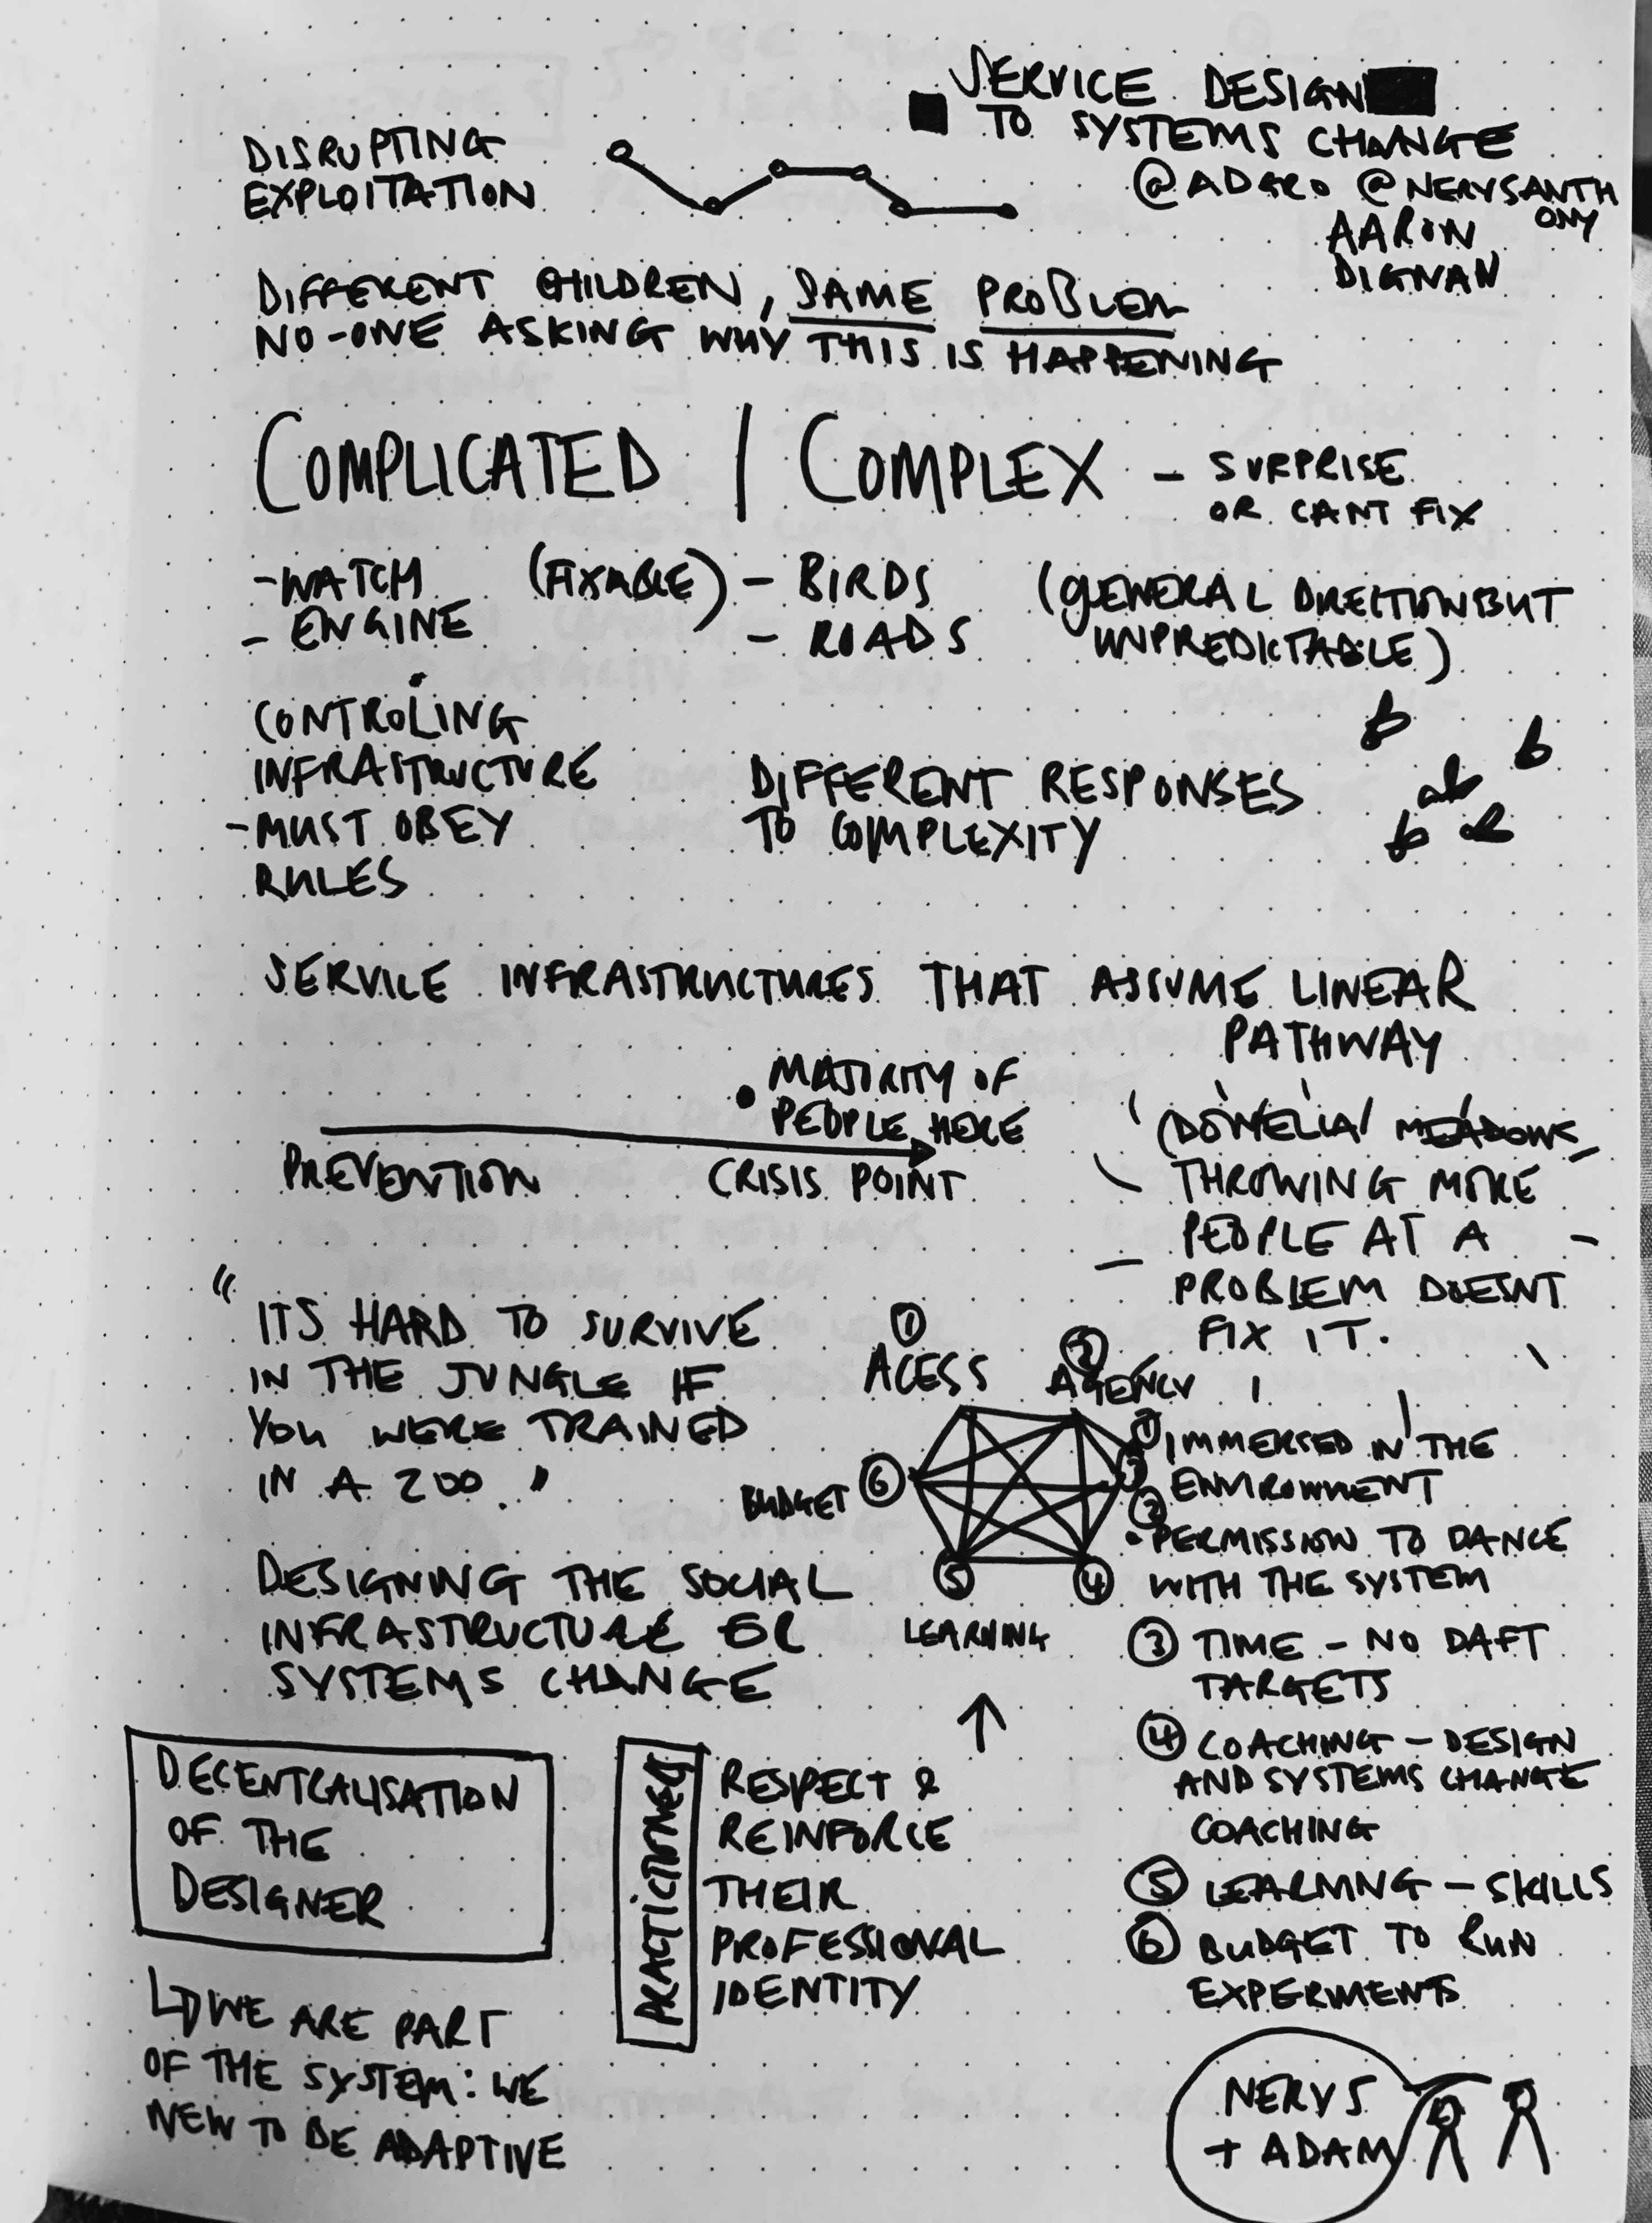 SERVICE DESIGN
TO SYSTEMS CHANGE
@ADGRO @NERYSANTH
ONY
AARON
DIGNAN
DISRUPTING
EXPLOITATION
DIFFERENT CHILDREN, SAME PROBLEM
NO-ONE ASKING WHY THIS IS HAPPENING
COMPLICATED | COMPLEX - SURPRISE
OR CANT FIX
- WATCH (FIXABLE)
- ENGINE
- BIRDS (GENERAL DIRECTION BUT
- ROADS UNPREDICTABLE)
CONTROLING
INFRASTRUCTURE
- MUST OBEY
RULES
DIFFERENT RESPONSES
TO COMPLEXITY
SERVICE INFRASTRUCTURES THAT ASSUME LINEAR
PATHWAY
• MAJORITY OF
PEOPLE HERE
PREVENTION CRISIS POINT
MEADOWS
THROWING MORE
PEOPLE AT A
PROBLEM DOESNT
FIX IT.
"ITS HARD TO SURVIVE
IN THE JUNGLE IF
YOU WERE TRAINED
IN A ZOO."
① ACESS
② AGENCY
③
④
⑤ LEARNING
⑥ BUDGET
① IMMERSED IN THE
ENVIRONMENT
② • PERMISSION TO DANCE
WITH THE SYSTEM
③ TIME - NO DAFT
TARGETS
④ COACHING - DESIGN
AND SYSTEMS CHANGE
COACHING
⑤ LEARNING - SKILLS
⑥ BUDGET TO RUN
EXPERIMENTS
DESIGNING THE SOCIAL
INFRASTRUCTURE FOR
SYSTEMS CHANGE
DECENTRALISATION
OF THE
DESIGNER
WE ARE PART
OF THE SYSTEM: WE
NEW TO BE ADAPTIVE
PRACTICTIONERS
RESPECT &
REINFORCE
THEIR
PROFESSIONAL
IDENTITY
NERYS
+ ADAM